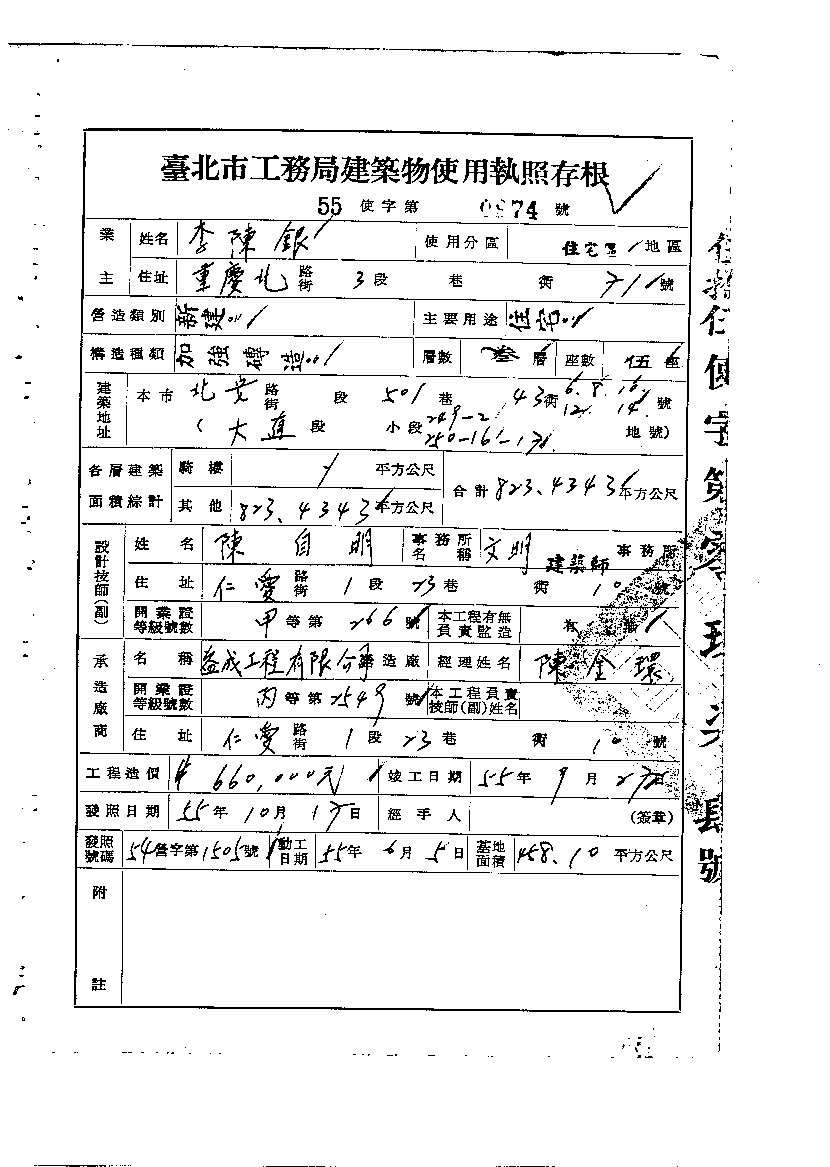 臺北市工務局建築物使用執照存根
55 使字第 0974 號
業主 姓名 李陳銀 使用分區 住宅區 地區
住址 重慶北 路街 3 段 巷 衖 號
營造類別 新建 主要用途 住宅
構造種類 加強磚造 層數 層 座數 伍 座
建築地址 本市 北安 路街 段 501 巷 43 衖 6. 8. 10. 12. 14. 號
( 大直 段 小段 249-2 地號)
各層建築面積綜計 騎樓 平方公尺 合計 823.4343 平方公尺
其他 823.4343 平方公尺
設計技師(副) 姓名 陳自明 事務所名稱 文明 建築師 事務所
住址 仁愛 路街 1 段 23 巷 衖 10 號
開業證等級號數 甲 等第 266 號 本工程有無負責監造 有
承造廠商 名稱 益成工程有限公司 營造廠 經理姓名 陳金環
開業證等級號數 丙 等第 2549 號 本工程負責技師(副)姓名
住址 仁愛 路街 1 段 23 巷 衖 10 號
工程造價 660,000元 竣工日期 55 年 9 月 日
發照日期 55 年 10 月 日 經手人 (簽章)
發照號碼 54 營字第 1505 號 動工日期 55 年 6 月 5 日 基地面積 458.10 平方公尺
附註
使字第零玖柒肆號